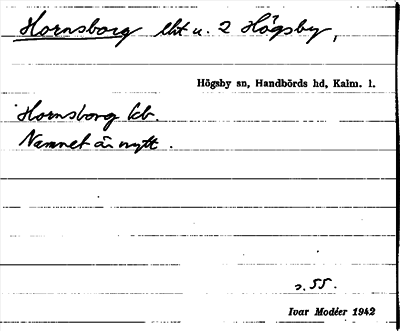 Hornsborg lht u. 2 Högsby,
Högsby sn, Handbörds hd, Kalm. l.
Hornsborg lb.
Namnet är nytt.
s. 55.
Ivar Modéer 1942